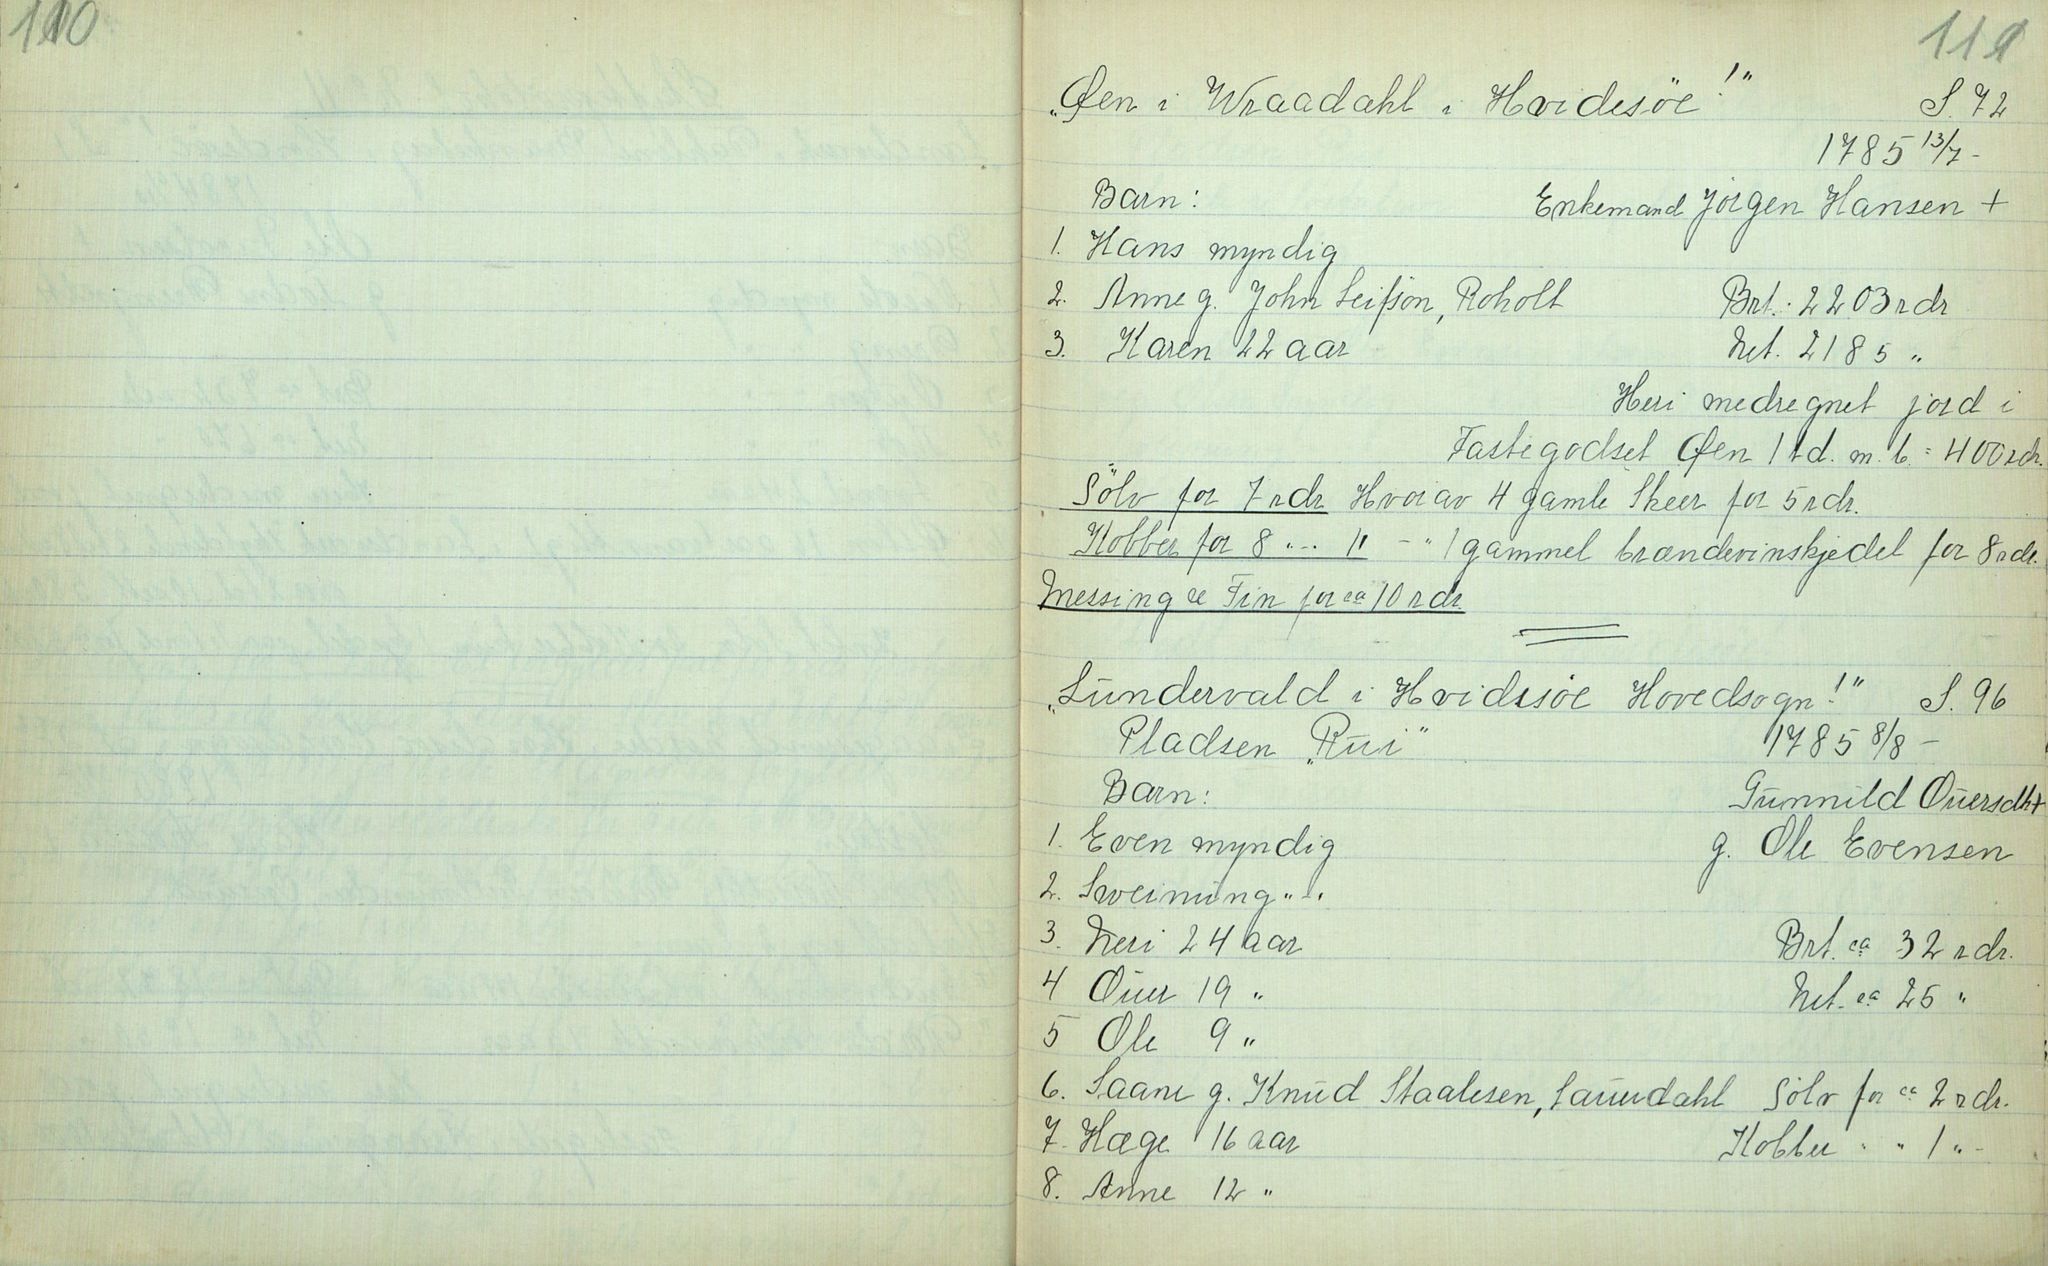 110
111
„Øen i Wraadahl i Hvidesöe!" S. 72
1785 13/7 -
Barn: Enkemand Jörgen Hansen +
1. Hans myndig
2. Anne g. John Leifsön, Roholt Brt. 2203 rdr
3. Karen 22 aar Net. 2185 „
Heri medregnet jord i
Fastegodset Øen 1 td. m. b. = 400 rdr.
Sölv for 7 rdr Hvorav 4 gamle Skeer for 5 rdr.
Kobber for 8 „-- " - " 1 gammel brændevinskjedel for 8 rdr.
Messing & Tin for ca 10 rdr.
„Sundervald i Hvidesöe Hovedsogn!" S. 96
Pladsen „Rui" 1785 8/8 -
Barn: Gunnild Ouersdtr +
1. Even myndig g. Ole Evensen
2. Sveinung „-„
3. Neri 24 aar Brt. ca 32 rdr.
4 Ouer 19 „ Net. ca 25 "
5 Ole 9 „
6. Saane g. Knud Staalesen, Sauerdahl Sölv for ca 2 rdr.
7. Hæge 16 aar Kobber " " 1 „-
8. Anne 12 „